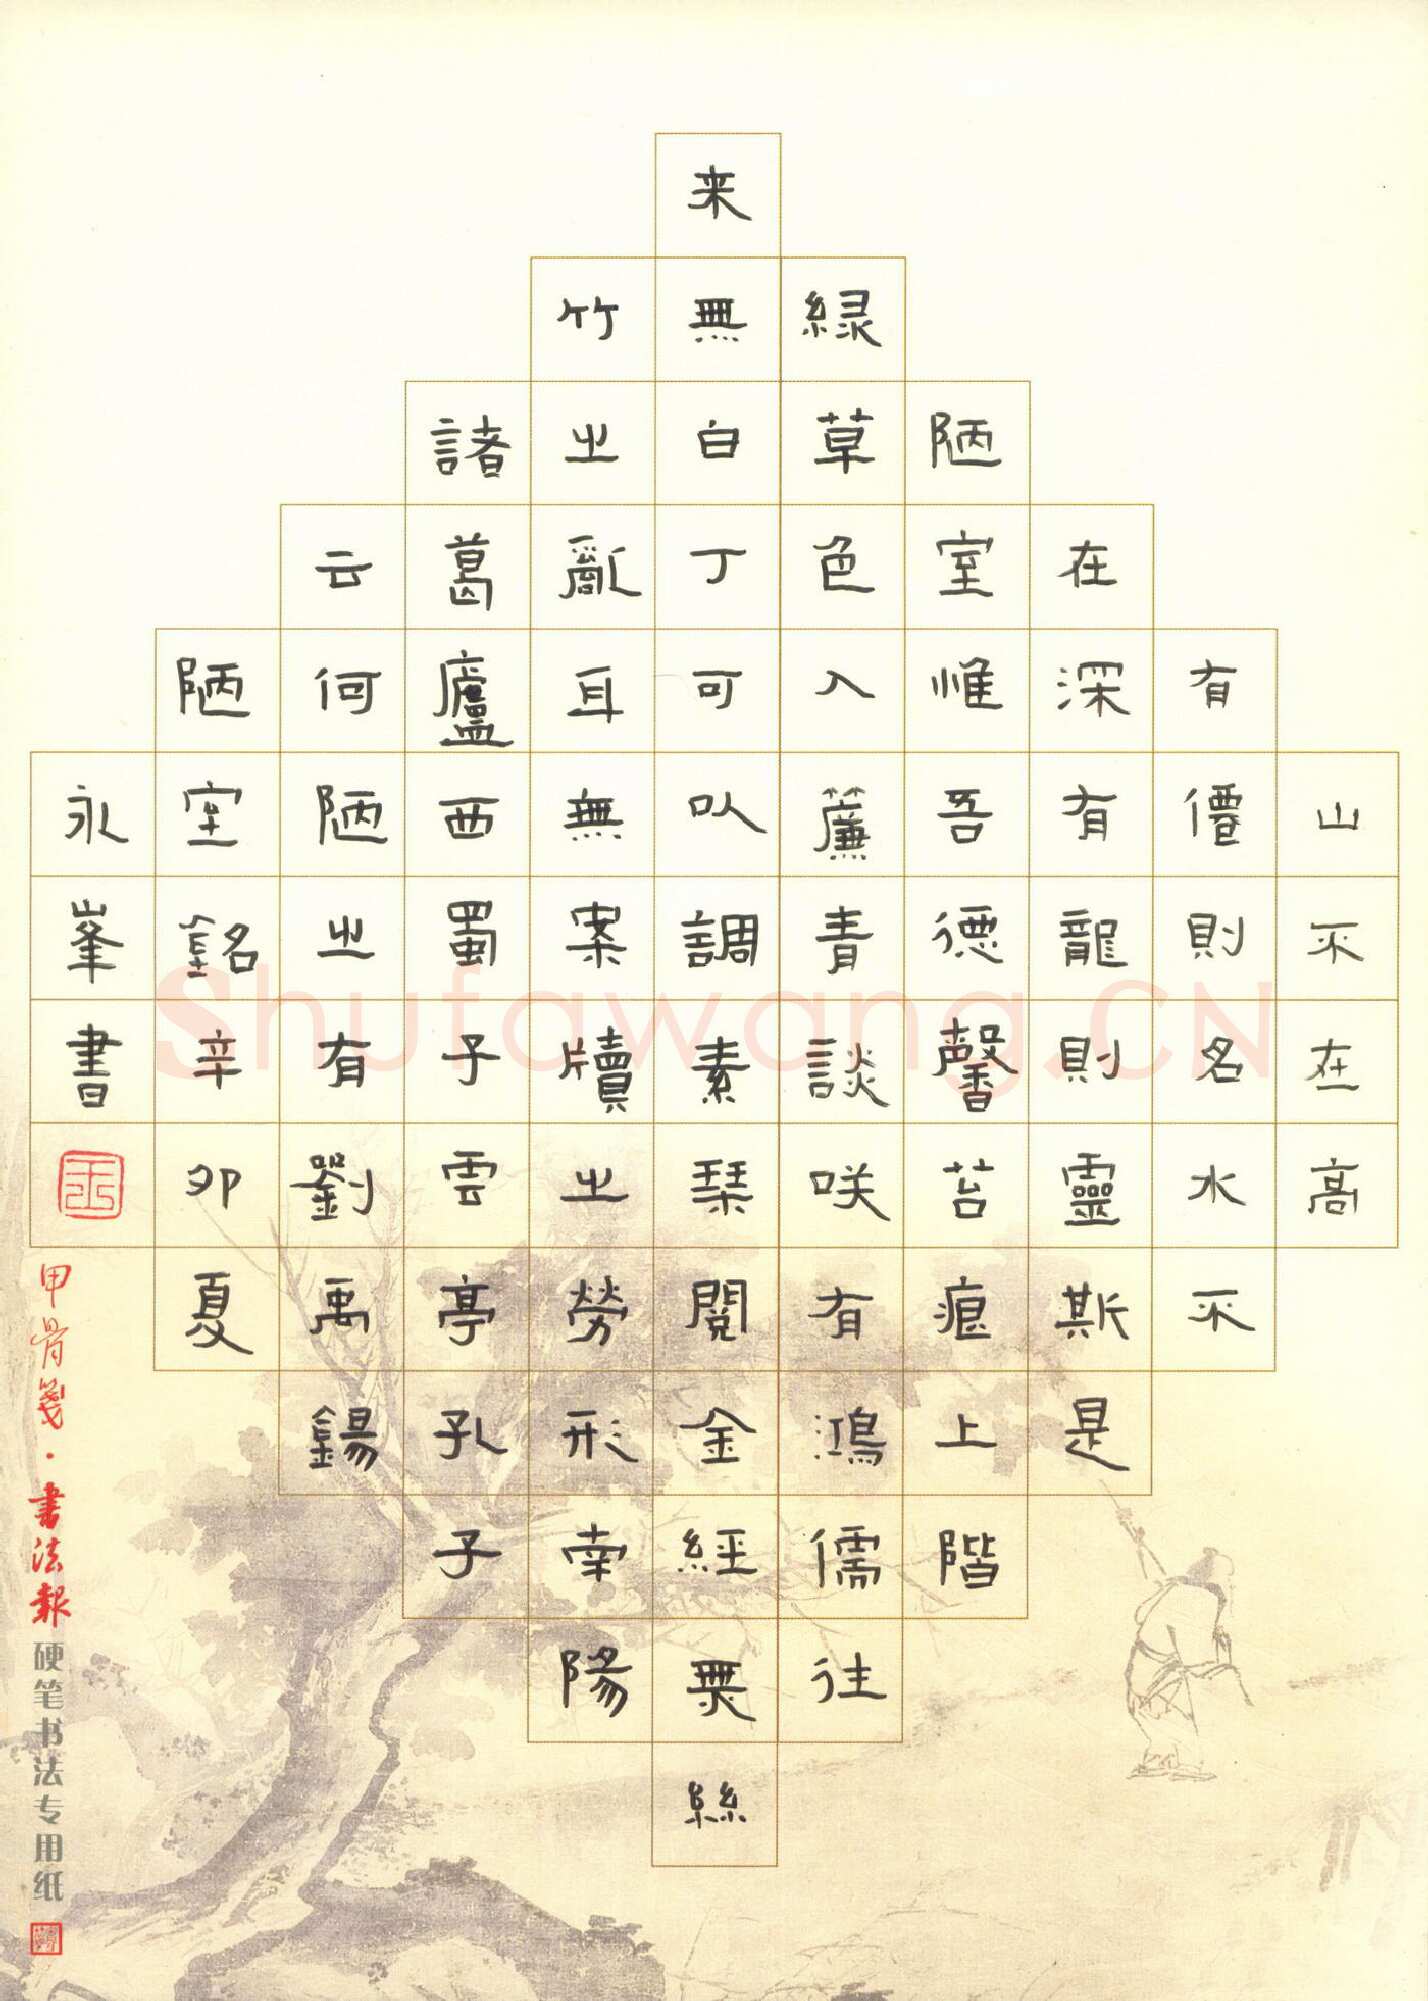 山不在高
有僊則名水不
在深有龍則靈斯是
陋室惟吾德馨苔痕上階
緑草色入簾青談咲有鴻儒往
来無白丁可以調素琹閱金經無絲
竹之亂耳無案牘之勞形南陽
諸葛廬西蜀子雲亭孔子
云何陋之有劉禹錫
陋室銘辛卯夏
永峯書
甲骨笺·書法報硬笔书法专用纸
Shufawang.CN